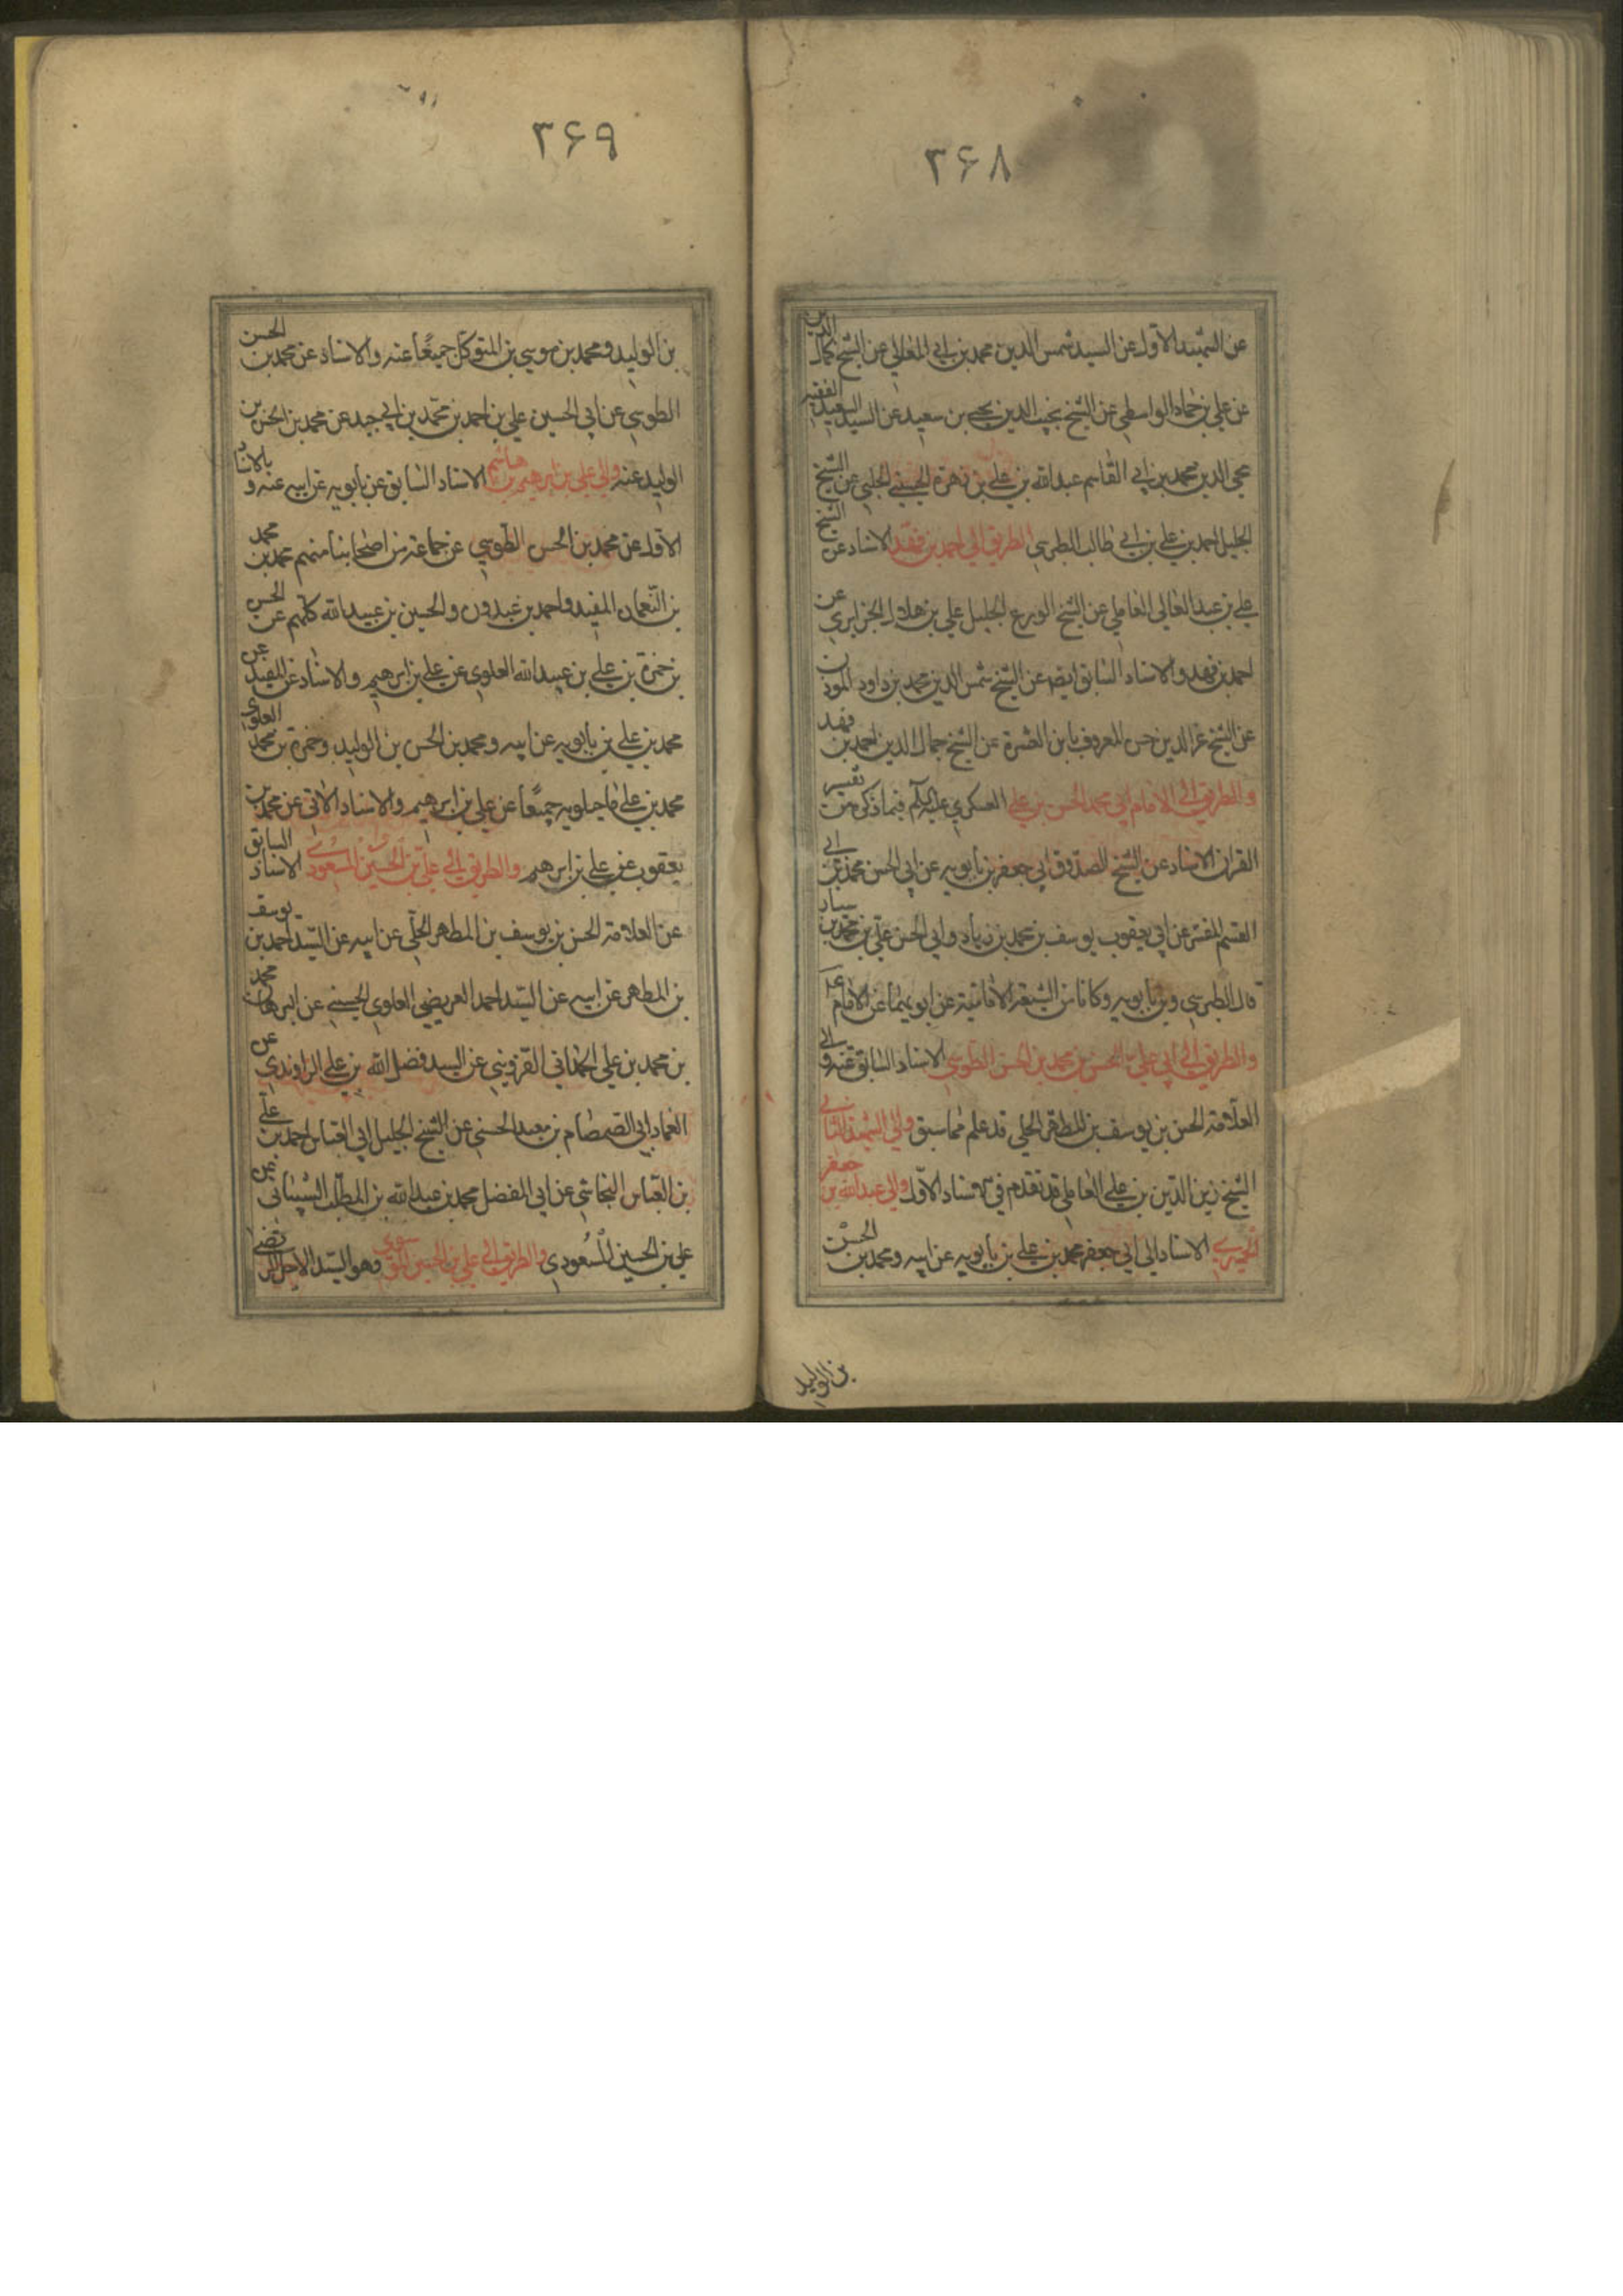 ۳۶۸
عن الشهيد الاول عن السيد شمس الدين محمد بن ابي المعالي عن الشيخ كمال الدين
عن علي بن حماد الواسطي عن الشيخ نجيب الدين يحيى بن سعيد عن السيد السعيد الفقيه
محي الدين محمد بن ابي القاسم عبدالله بن علي بن زهرة الحسيني الحلبي عن الشيخ
الجليل احمد بن علي بن ابي طالب الطبرسي الطريق الى احمد بن فهد الاسناد عن الشيخ
علي بن عبد العالي العاملي عن الشيخ الورع الجليل علي بن هلال الجزايري عن
احمد بن فهد والاسناد السابق ايضا عن الشيخ شمس الدين محمد بن داود الموذن
عن الشيخ عز الدين حسن المعروف بابن العشرة عن الشيخ جمال الدين احمد بن فهد
والطريق الى الامام ابي محمد الحسن بن علي العسكري عليه السلم فيما ذكر من تفسير
القران الاسناد عن الشيخ الصدوق ابي جعفر بن بابويه عن ابي الحسن محمد بن ابي
القسم المفسر عن ابي يعقوب يوسف بن محمد بن زياد وابي الحسن علي بن محمد بن سيار
قال الطبرسي وبن بابويه وكانا من الشيعة الامامية عن ابويهما عن الامام ع
والطريق الى ابي علي الحسن بن محمد بن الحسن الطوسي الاسناد السابق عنه والى
العلامة الحسن بن يوسف بن المطهر الحلي قد علم مما سبق والى الشهيد الثاني
الشيخ زين الدين بن علي العاملي قد تقدم في الاسناد الاول والى عبدالله بن جعفر
الحميري الاسناد الى ابي جعفر محمد بن علي بن بابويه عن ابيه ومحمد بن الحسن
بن الوليد
۳۶۹
بن الوليد ومحمد بن موسي بن المتوكل جميعا عنه والاسناد عن محمد بن الحسن
الطوسي عن ابي الحسين علي بن احمد بن محمد بن ابي جيد عن محمد بن الحسن بن
الوليد عنه والى علي بن ابرهيم بن هاشم الاسناد السابق عن بابويه عن ابيه عنه وبالاسناد
الاول عن محمد بن الحسن الطوسي عن جماعة من اصحابنا منهم محمد بن محمد
بن النعمان المفيد واحمد بن عبدون والحسين بن عبيدالله كلهم عن الحسن
بن حمزة بن علي بن عبيدالله العلوي عن علي بن ابرهيم والاسناد عن المفيد عن
محمد بن علي بن بابويه عن ابيه ومحمد بن الحسن بن الوليد وحمزة بن محمد العلوي
محمد بن علي ماجيلويه جميعا عن علي بن ابرهيم والاسناد الاتي عن محمد بن
يعقوب عن علي بن ابرهيم والطريق الى علي بن الحسين المسعودي الاسناد السابق
عن العلامة الحسن بن يوسف بن المطهر الحلي عن ابيه عن السيد احمد بن يوسف
بن المطهر عن ابيه عن السيد احمد العريضي العلوي الحسيني عن البرهان محمد
بن محمد بن علي الحمداني القزويني عن السيد فضل الله بن علي الراوندي عن
العماد ابي الصمصام بن معبد الحسني عن الشيخ الجليل ابي العباس احمد بن علي
بن العباس النجاشي عن ابي المفضل محمد بن عبدالله بن المطلب الشيباني عن
علي بن الحسين المسعودي والطريق الى علي بن الحسين الموسوي وهو السيد الاجل المرتضى